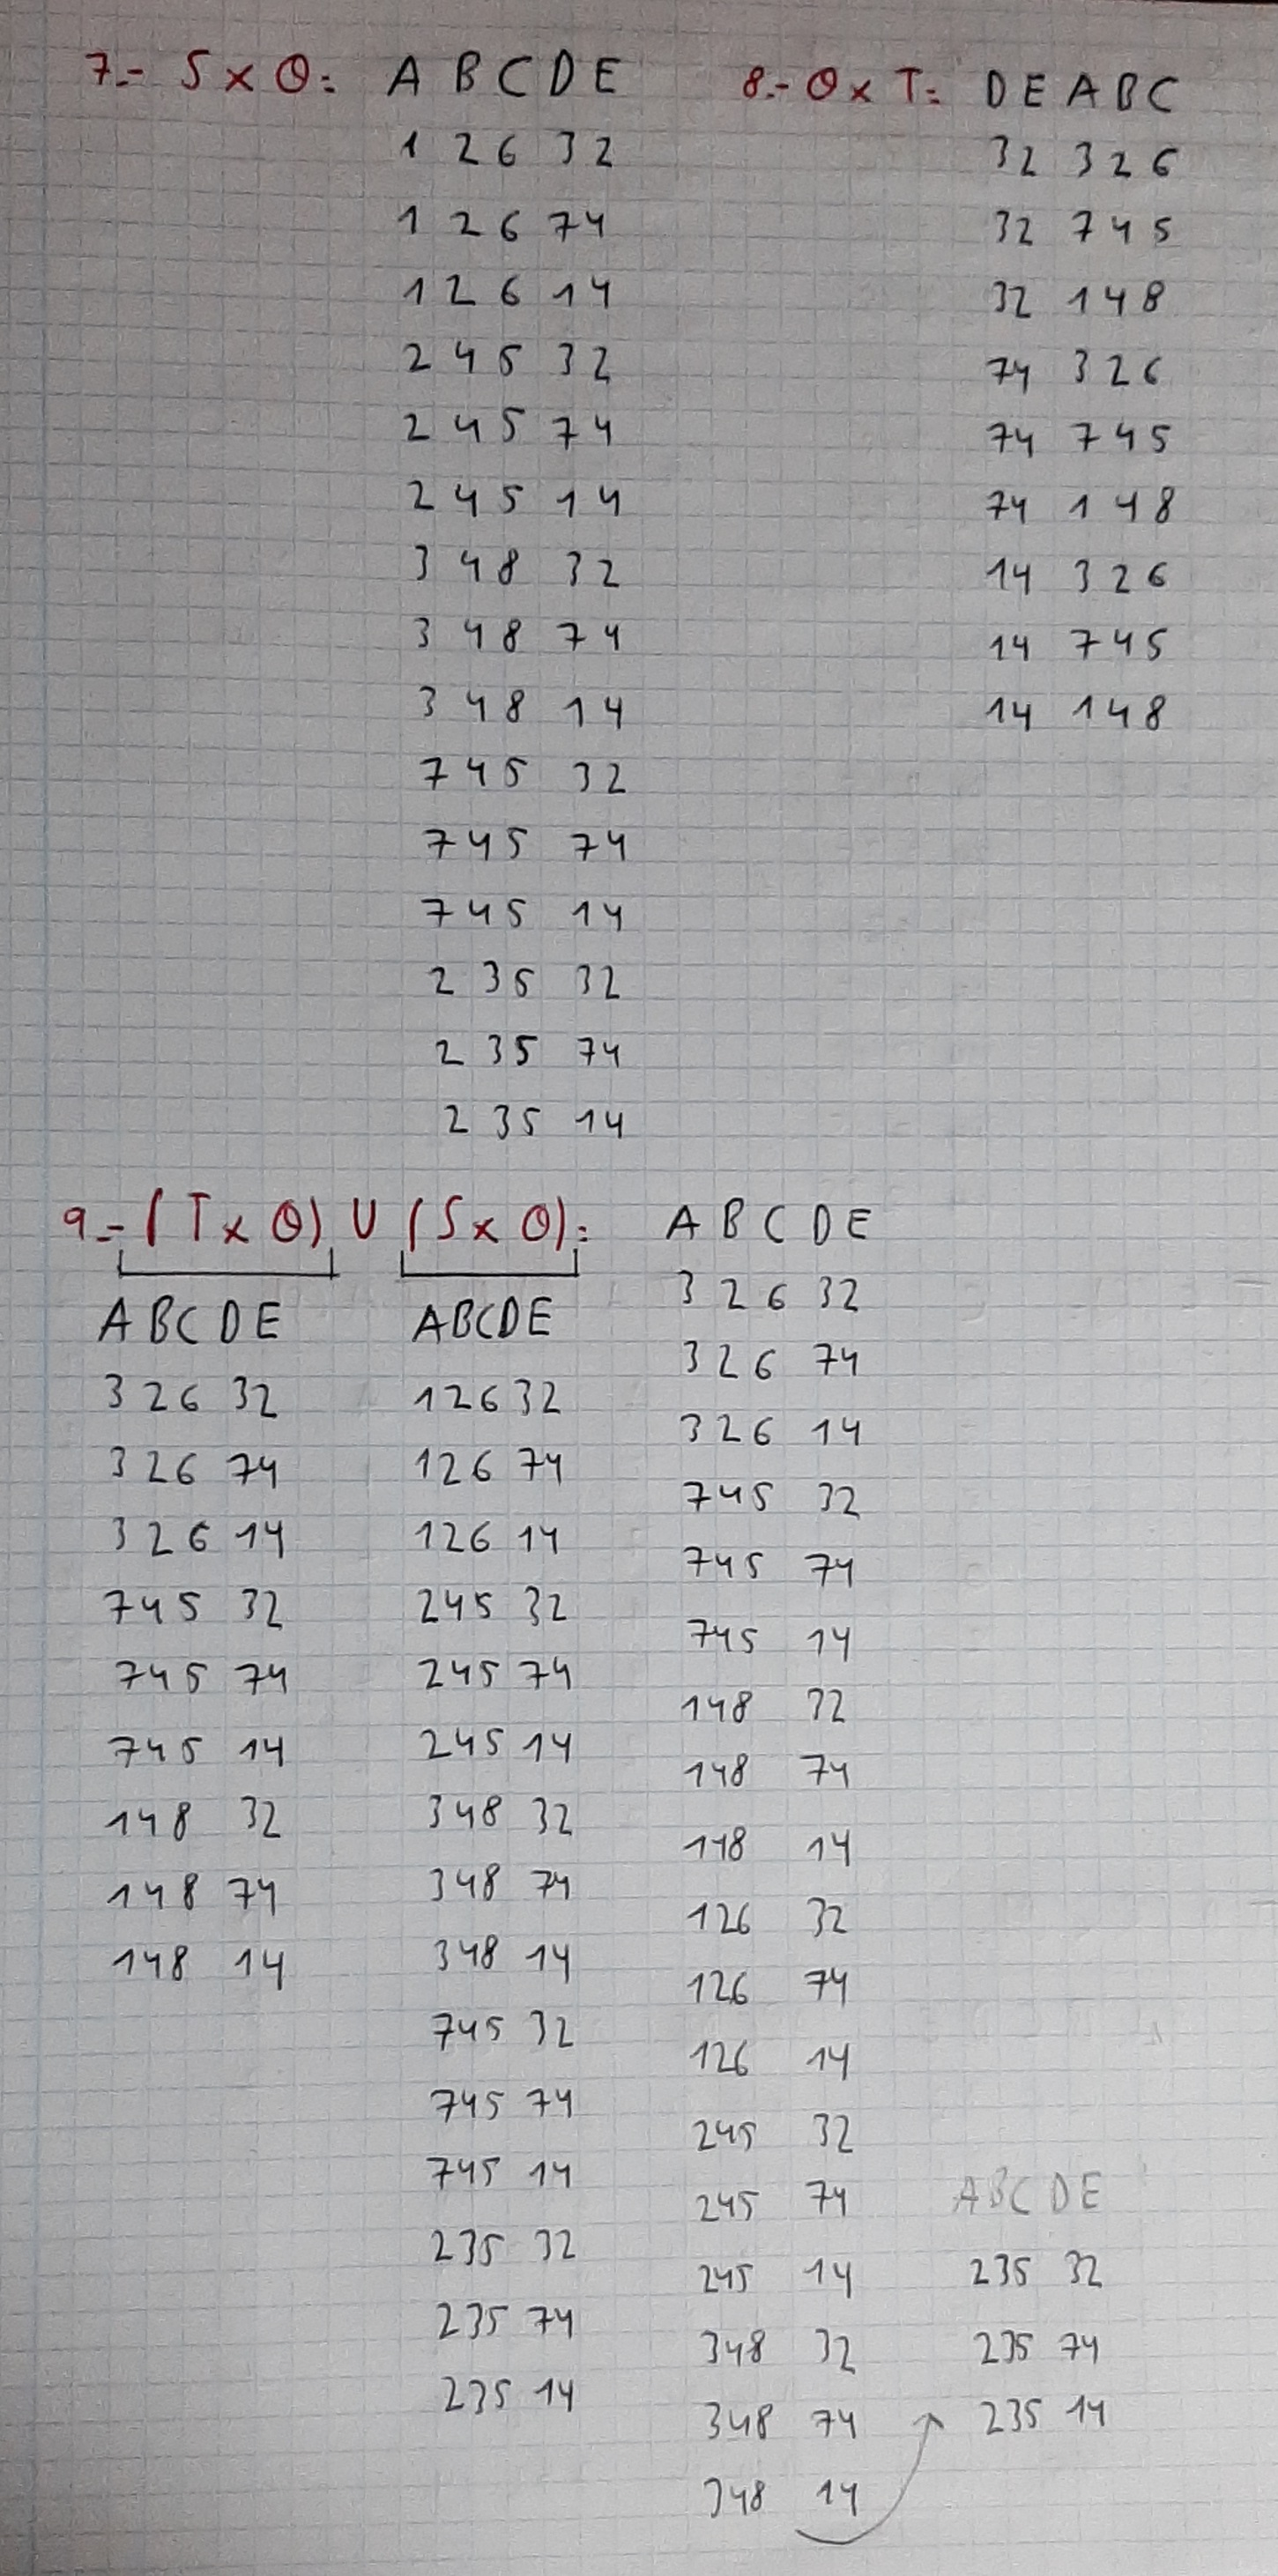 7.- S x Θ: A B C D E
1 2 6 3 2
1 2 6 7 4
1 2 6 1 4
2 4 5 3 2
2 4 5 7 4
2 4 5 1 4
3 4 8 3 2
3 4 8 7 4
3 4 8 1 4
7 4 5 3 2
7 4 5 7 4
7 4 5 1 4
2 3 5 3 2
2 3 5 7 4
2 3 5 1 4
8.- Θ x T: D E A B C
3 2 3 2 6
3 2 7 4 5
3 2 1 4 8
7 4 3 2 6
7 4 7 4 5
7 4 1 4 8
1 4 3 2 6
1 4 7 4 5
1 4 1 4 8
9.- (T x Θ) U (S x Θ):
A B C D E
3 2 6 3 2
3 2 6 7 4
3 2 6 1 4
7 4 5 3 2
7 4 5 7 4
7 4 5 1 4
1 4 8 3 2
1 4 8 7 4
1 4 8 1 4
A B C D E
1 2 6 3 2
1 2 6 7 4
1 2 6 1 4
2 4 5 3 2
2 4 5 7 4
2 4 5 1 4
3 4 8 3 2
3 4 8 7 4
3 4 8 1 4
7 4 5 3 2
7 4 5 7 4
7 4 5 1 4
2 3 5 3 2
2 3 5 7 4
2 3 5 1 4
A B C D E
3 2 6 3 2
3 2 6 7 4
3 2 6 1 4
7 4 5 3 2
7 4 5 7 4
7 4 5 1 4
1 4 8 3 2
1 4 8 7 4
1 4 8 1 4
1 2 6 3 2
1 2 6 7 4
1 2 6 1 4
2 4 5 3 2
2 4 5 7 4
2 4 5 1 4
3 4 8 3 2
3 4 8 7 4
3 4 8 1 4
A B C D E
2 3 5 3 2
2 3 5 7 4
2 3 5 1 4